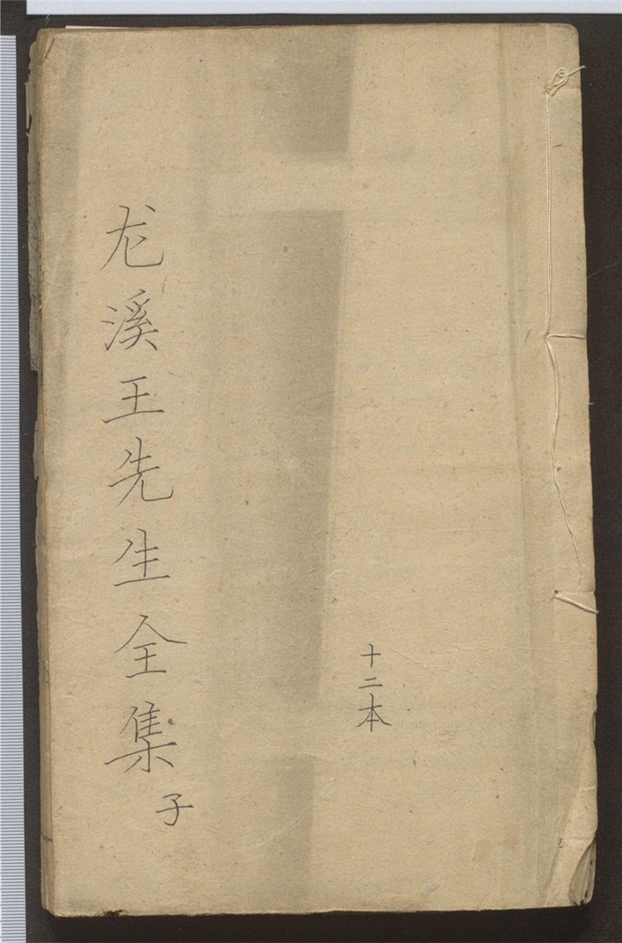 十二本
龙溪王先生全集 子